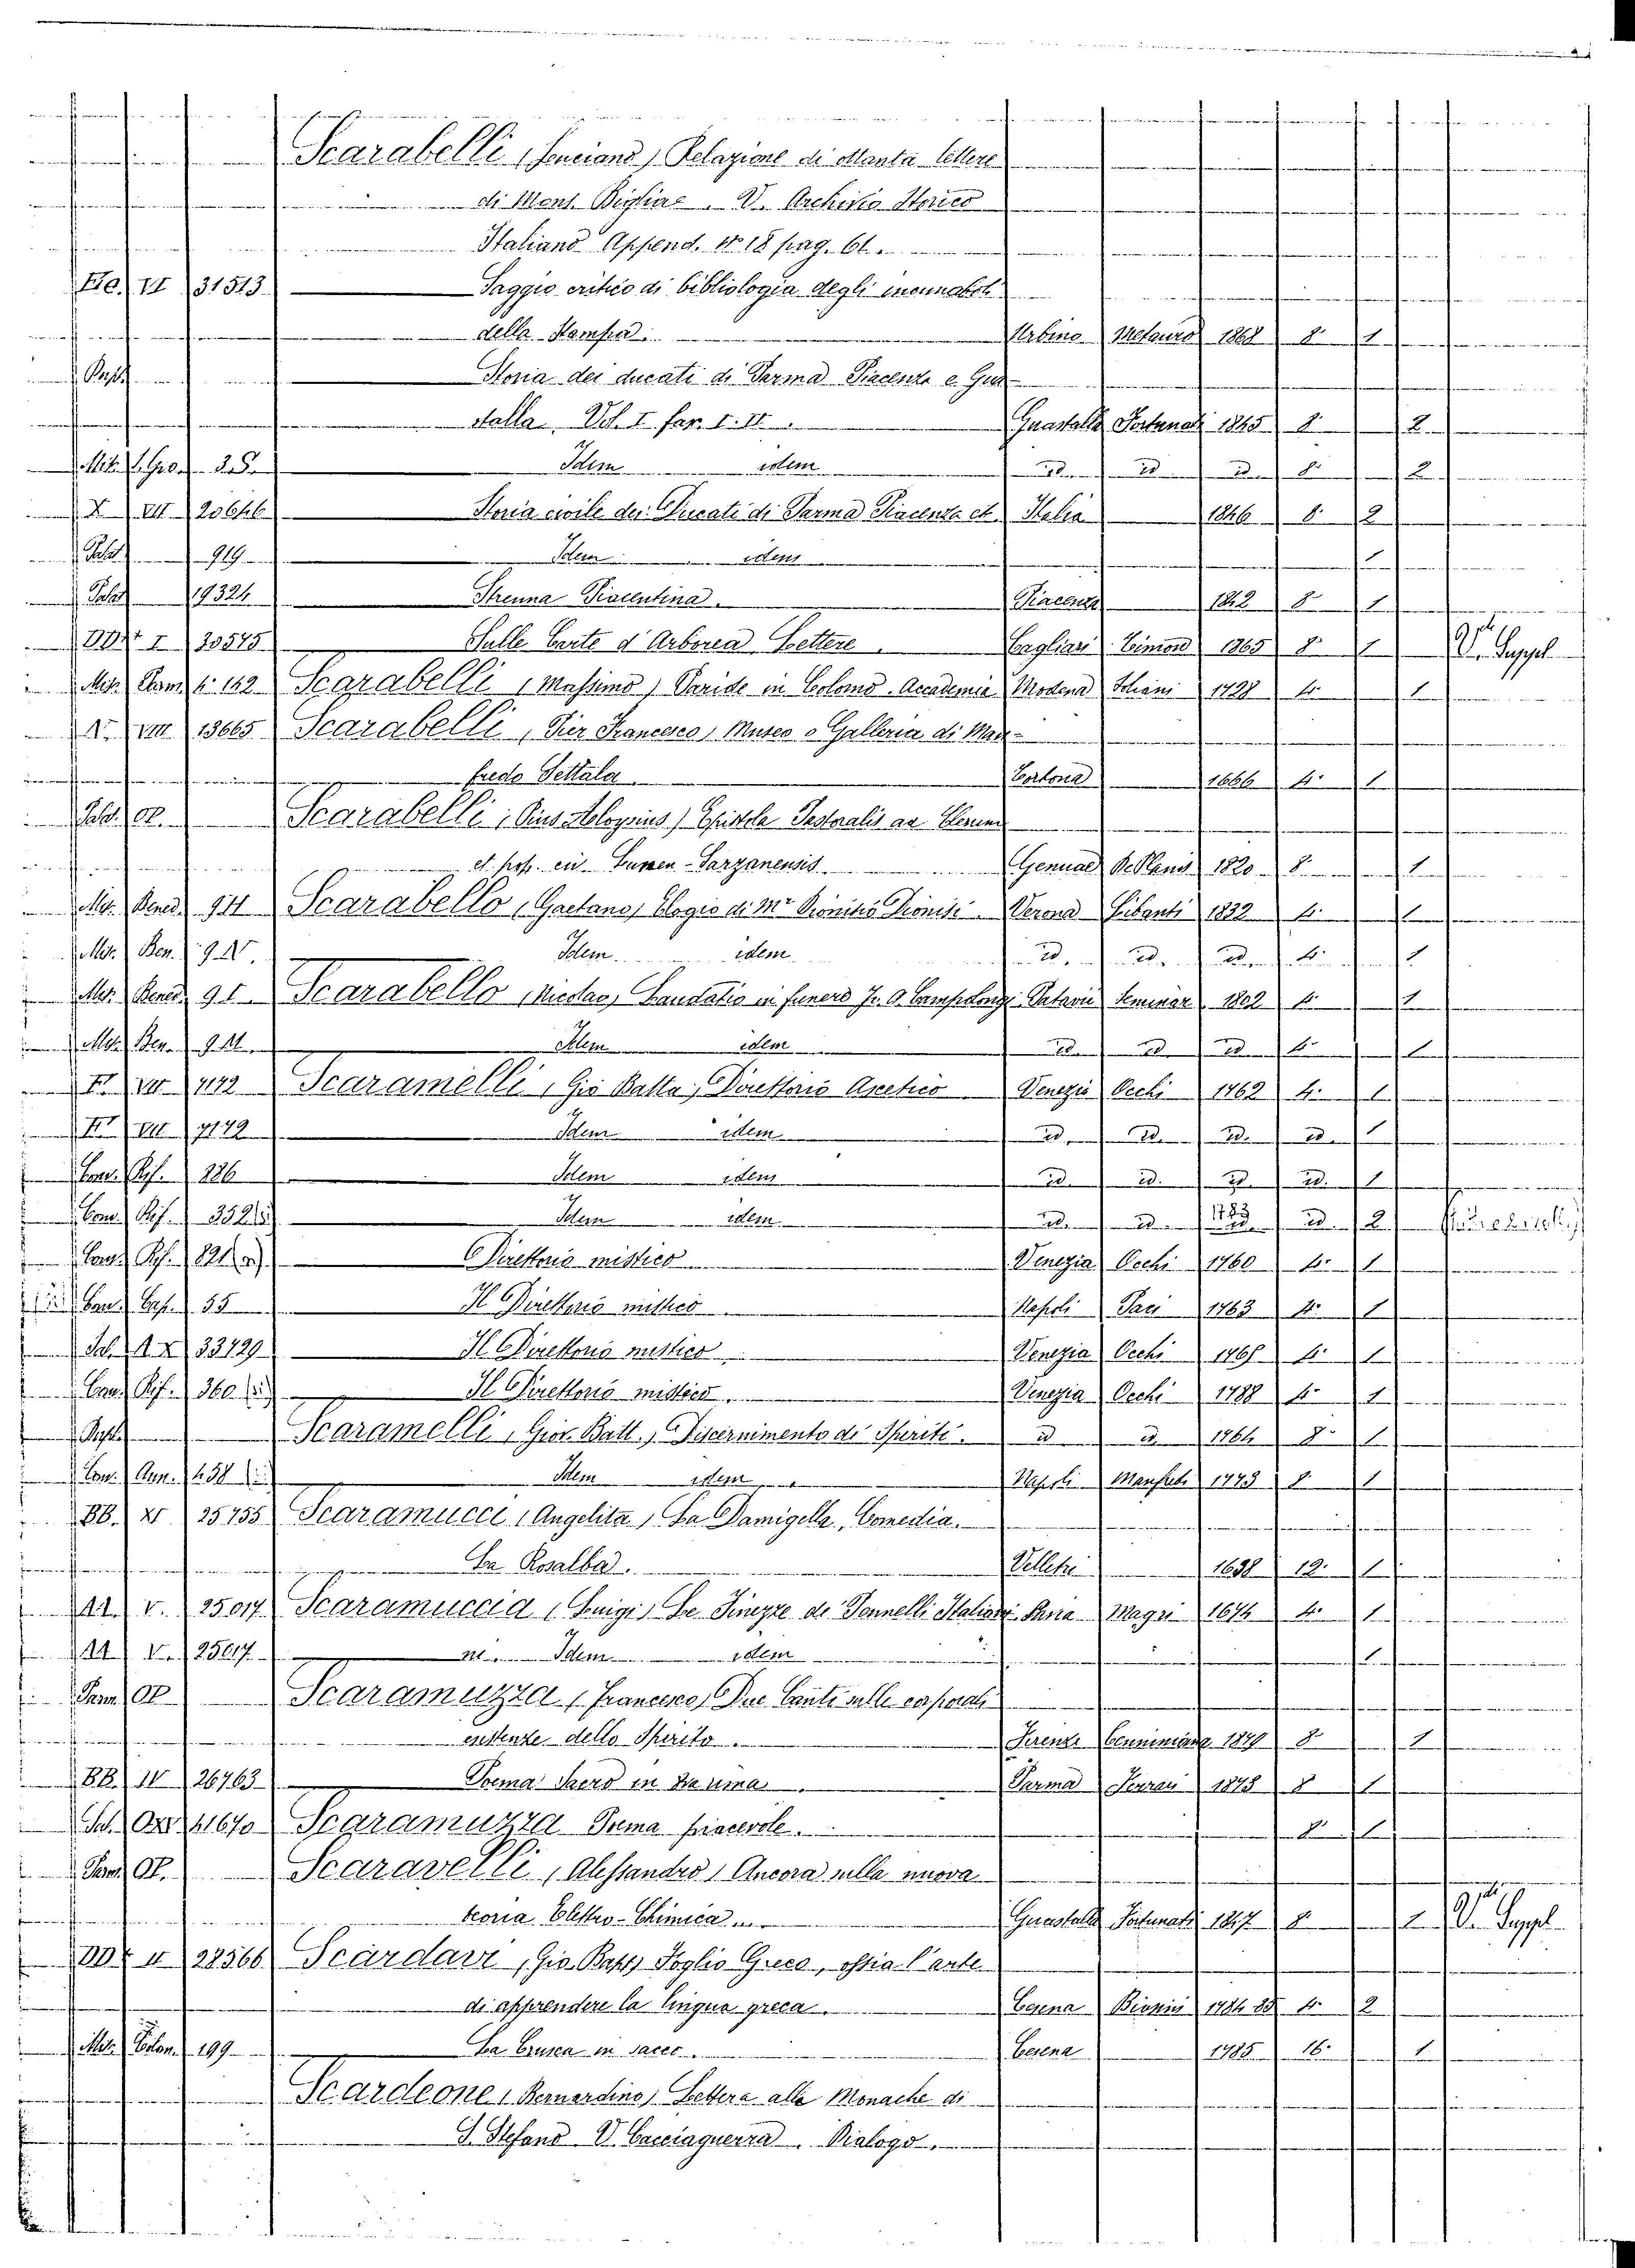 Scarabelli, Luciano, Relazione di Manta lettere
di Mons. Bigliore. V. Archivio Storico
Italiano Append. N° 18 pag. 61.
II 31513 Saggio critico di bibliologia degli incunaboli
della Stampa. Urbino Metauro 1868 8° 1
Storia dei ducati di Parma Piacenza e Gua-
stalla. Vol. I far. I. II. Guastalla Fortunati 1845 8° 2
Idem idem id. id id. 8° 2
X VII 20646 Storia civile dei Ducati di Parma Piacenza et. Italia 1846 8° 2
Palat 919 Idem idem 1
Palat 19324 Strenna Piacentina. Piacenza 1842 8 1
I 30575 Sulle Carte d'Arborea Lettere. Cagliari Timon 1865 8° 1 V. Suppl
Mis. 142 Scarabelli, Massimo, Paride in Colomo. Accademia Modena Soliani 1728 4° 1
VIII 13665 Scarabelli, Pier Francesco, Museo o Galleria di Man-
fredo Settala Tortona 1666 4° 1
Scarabelli, Pius Aloysius, Epistola Pastoralis ad Clerum
et pop. Lunen-Sarzanensis Genuae De Planis 1820 8° 1
Mis. Bened. 911 Scarabello, Gaetano, Elogio di Mr Dionisio Dionisi. Verona Libanti 1832 4° 1
Mis. Ben. 9 Idem idem id. id. id. 4° 1
Mis. Bened. 9 Scarabello, Nicolao, Laudatio in funere Patavii Seminar. 1802 4° 1
Mis. Ben. 9 Idem idem id. id id 4° 1
VII 7172 Scaramelli, Gio Batta, Direttorio Ascetico Venezia Occhi 1762 4° 1
VII 7172 Idem idem id. id. id. id. 1
Conv. Rif. 226 Idem idem id. id. id. id. 1
Conv. Rif. 352 Idem idem id. id. 1783 id. id. 2
Conv. Rif. 821 Direttorio mistico Venezia Occhi 1760 4° 1
Conv. Cap. 55 Il Direttorio mistico Napoli Paci 1763 4° 1
Sal. 33729 Il Direttorio mistico Venezia Occhi 1765 4° 1
Conv. Rif. 360 Il Direttorio mistico. Venezia Occhi 1788 4° 1
Scaramelli, Giov. Batt., Discernimento di Spiriti. id id. 1764 8° 1
Conv. Ann. 458 Idem idem Napoli Manfredi 1773 8° 1
BB. XI 25755 Scaramucci, Angelita, La Damigella, Comedia.
La Rosalba. Velletri 1638 12. 1
AA. V. 25017 Scaramuccia, Luigi, Le Finezze de Pennelli Italiani Pavia Magri 1674 4° 1
AA V. 25017 Idem idem 1
Parm. OP Scaramuzza, Francesco, Due Canti sulle corporali
esistenze dello Spirito. Firenze Cenniniana 1879 8° 1
BB. IV 26763 Poema Sacro in Parma Ferrari 1875 8 1
Sal. 41670 Scaramuzza Poema piacevole. 8° 1
Parm. OP. Scaravelli, Alessandro, Ancora sulla nuova
teoria Elettro-Chimica Guastalla Fortunati 1847 8 1 V. Suppl
II 28566 Scardavi, Gio Batt, Foglio Greco, ossia l'arte
di apprendere la lingua greca. Cesena Biasini 1784 85 4° 2
Mis. Colon. 199 La Crusca in sacco. Cesena 1785 16° 1
Scardeone, Bernardino, Lettera alle Monache di
S. Stefano V. Cacciaguerra. Dialogo.